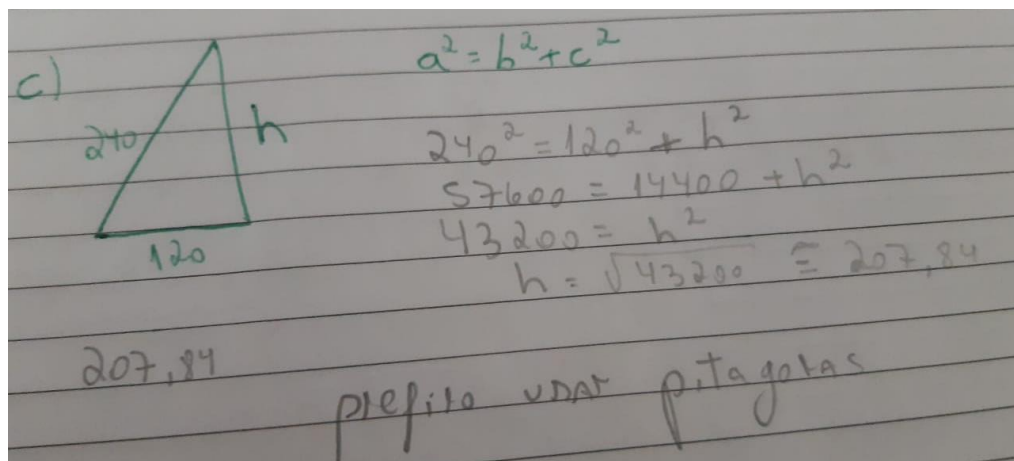 c)
a² = b² + c²
240
h
120
240² = 120² + h²
57600 = 14400 + h²
43200 = h²
h = √43200 ≅ 207,84
207,84
prefiro usar pitagoras